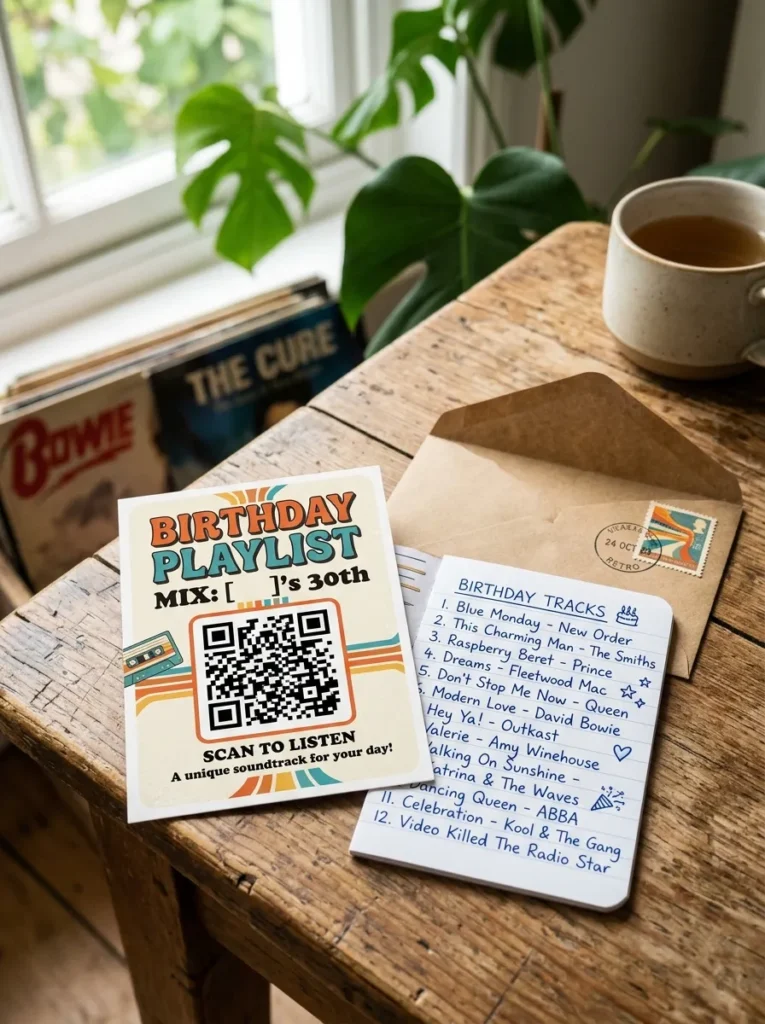 BOWIE
THE CURE
BIRTHDAY
PLAYLIST
MIX: [ ]'s 30th
SCAN TO LISTEN
A unique soundtrack for your day!
24 OCT
RETRO
BIRTHDAY TRACKS
1. Blue Monday - New Order
2. This Charming Man - The Smiths
3. Raspberry Beret - Prince
4. Dreams - Fleetwood Mac
5. Don't Stop Me Now - Queen
. Modern Love - David Bowie
Hey Ya! - Outkast
Valerie - Amy Winehouse
Walking On Sunshine -
Katrina & The Waves
Dancing Queen - ABBA
11. Celebration - Kool & The Gang
12. Video Killed The Radio Star